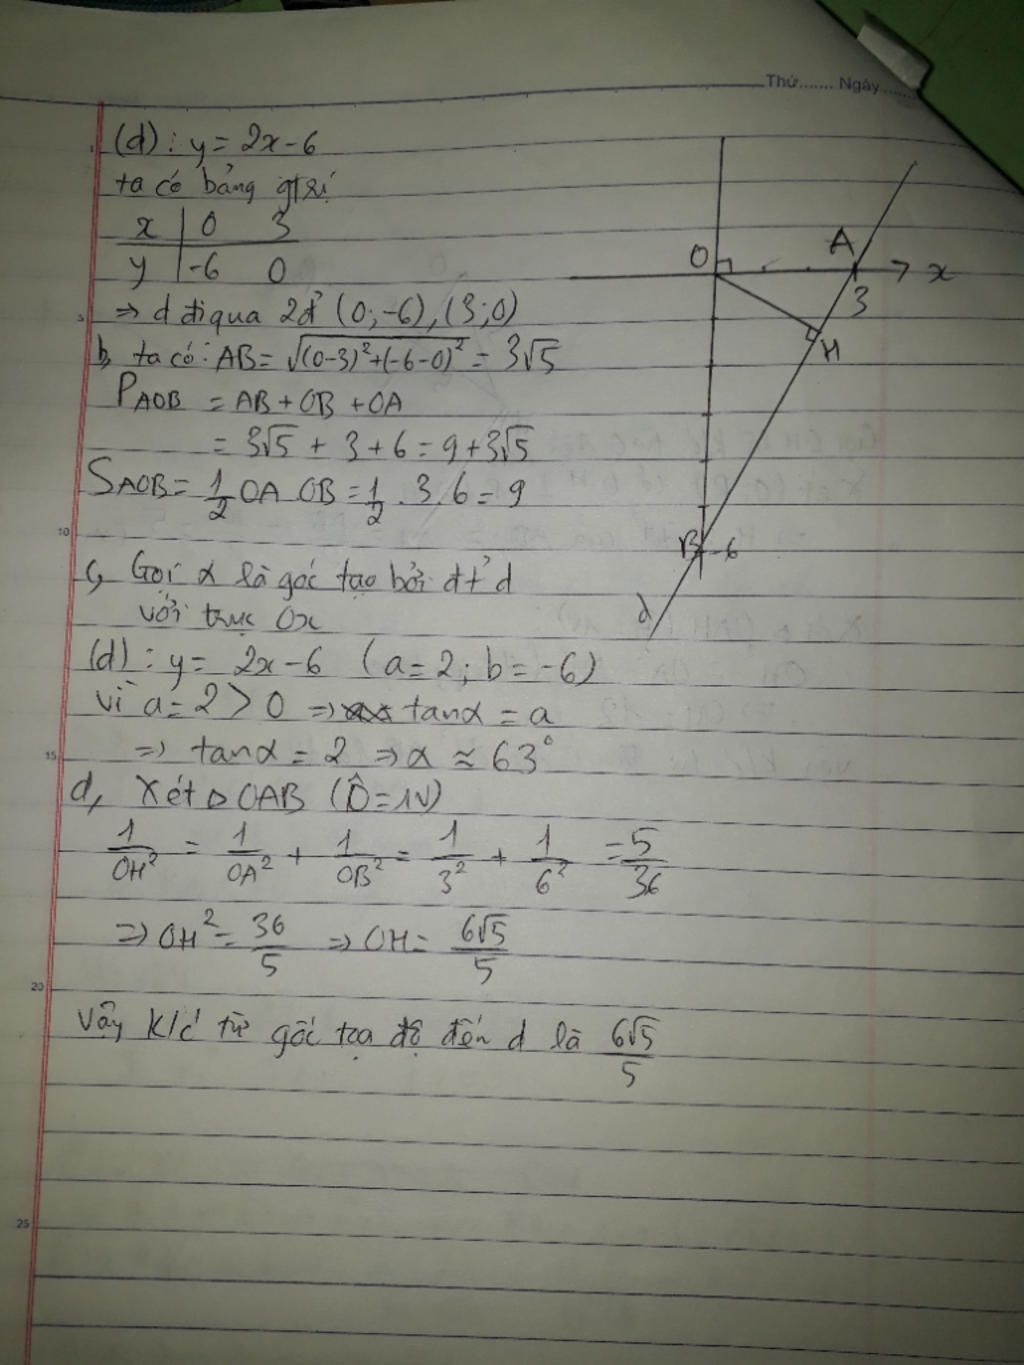 Thứ....... Ngày.......
(d): y = 2x - 6
ta có bảng gtrị
x | 0 3
y | -6 0
=> d đi qua 2đ' (0; -6), (3; 0)
b, ta có: AB = √(0-3)²+(-6-0)² = 3√5
P AOB = AB + OB + OA
= 3√5 + 3 + 6 = 9 + 3√5
S AOB = 1/2 OA OB = 1/2 . 3. 6 = 9
c, Gọi α là góc tạo bởi đt' d
với trục Ox
(d): y = 2x - 6 (a = 2; b = -6)
vì a = 2 > 0 => tanα = a
=> tanα = 2 => α ≈ 63°
d, Xét △ OAB (Ô = 1V)
1/OH² = 1/OA² + 1/OB² = 1/3² + 1/6² = 5/36
=> OH² = 36/5 => OH = 6√5/5
Vậy k/c từ gốc tọa độ đến d là 6√5/5
O
A
x
3
H
B
-6
d
5
10
15
20
25